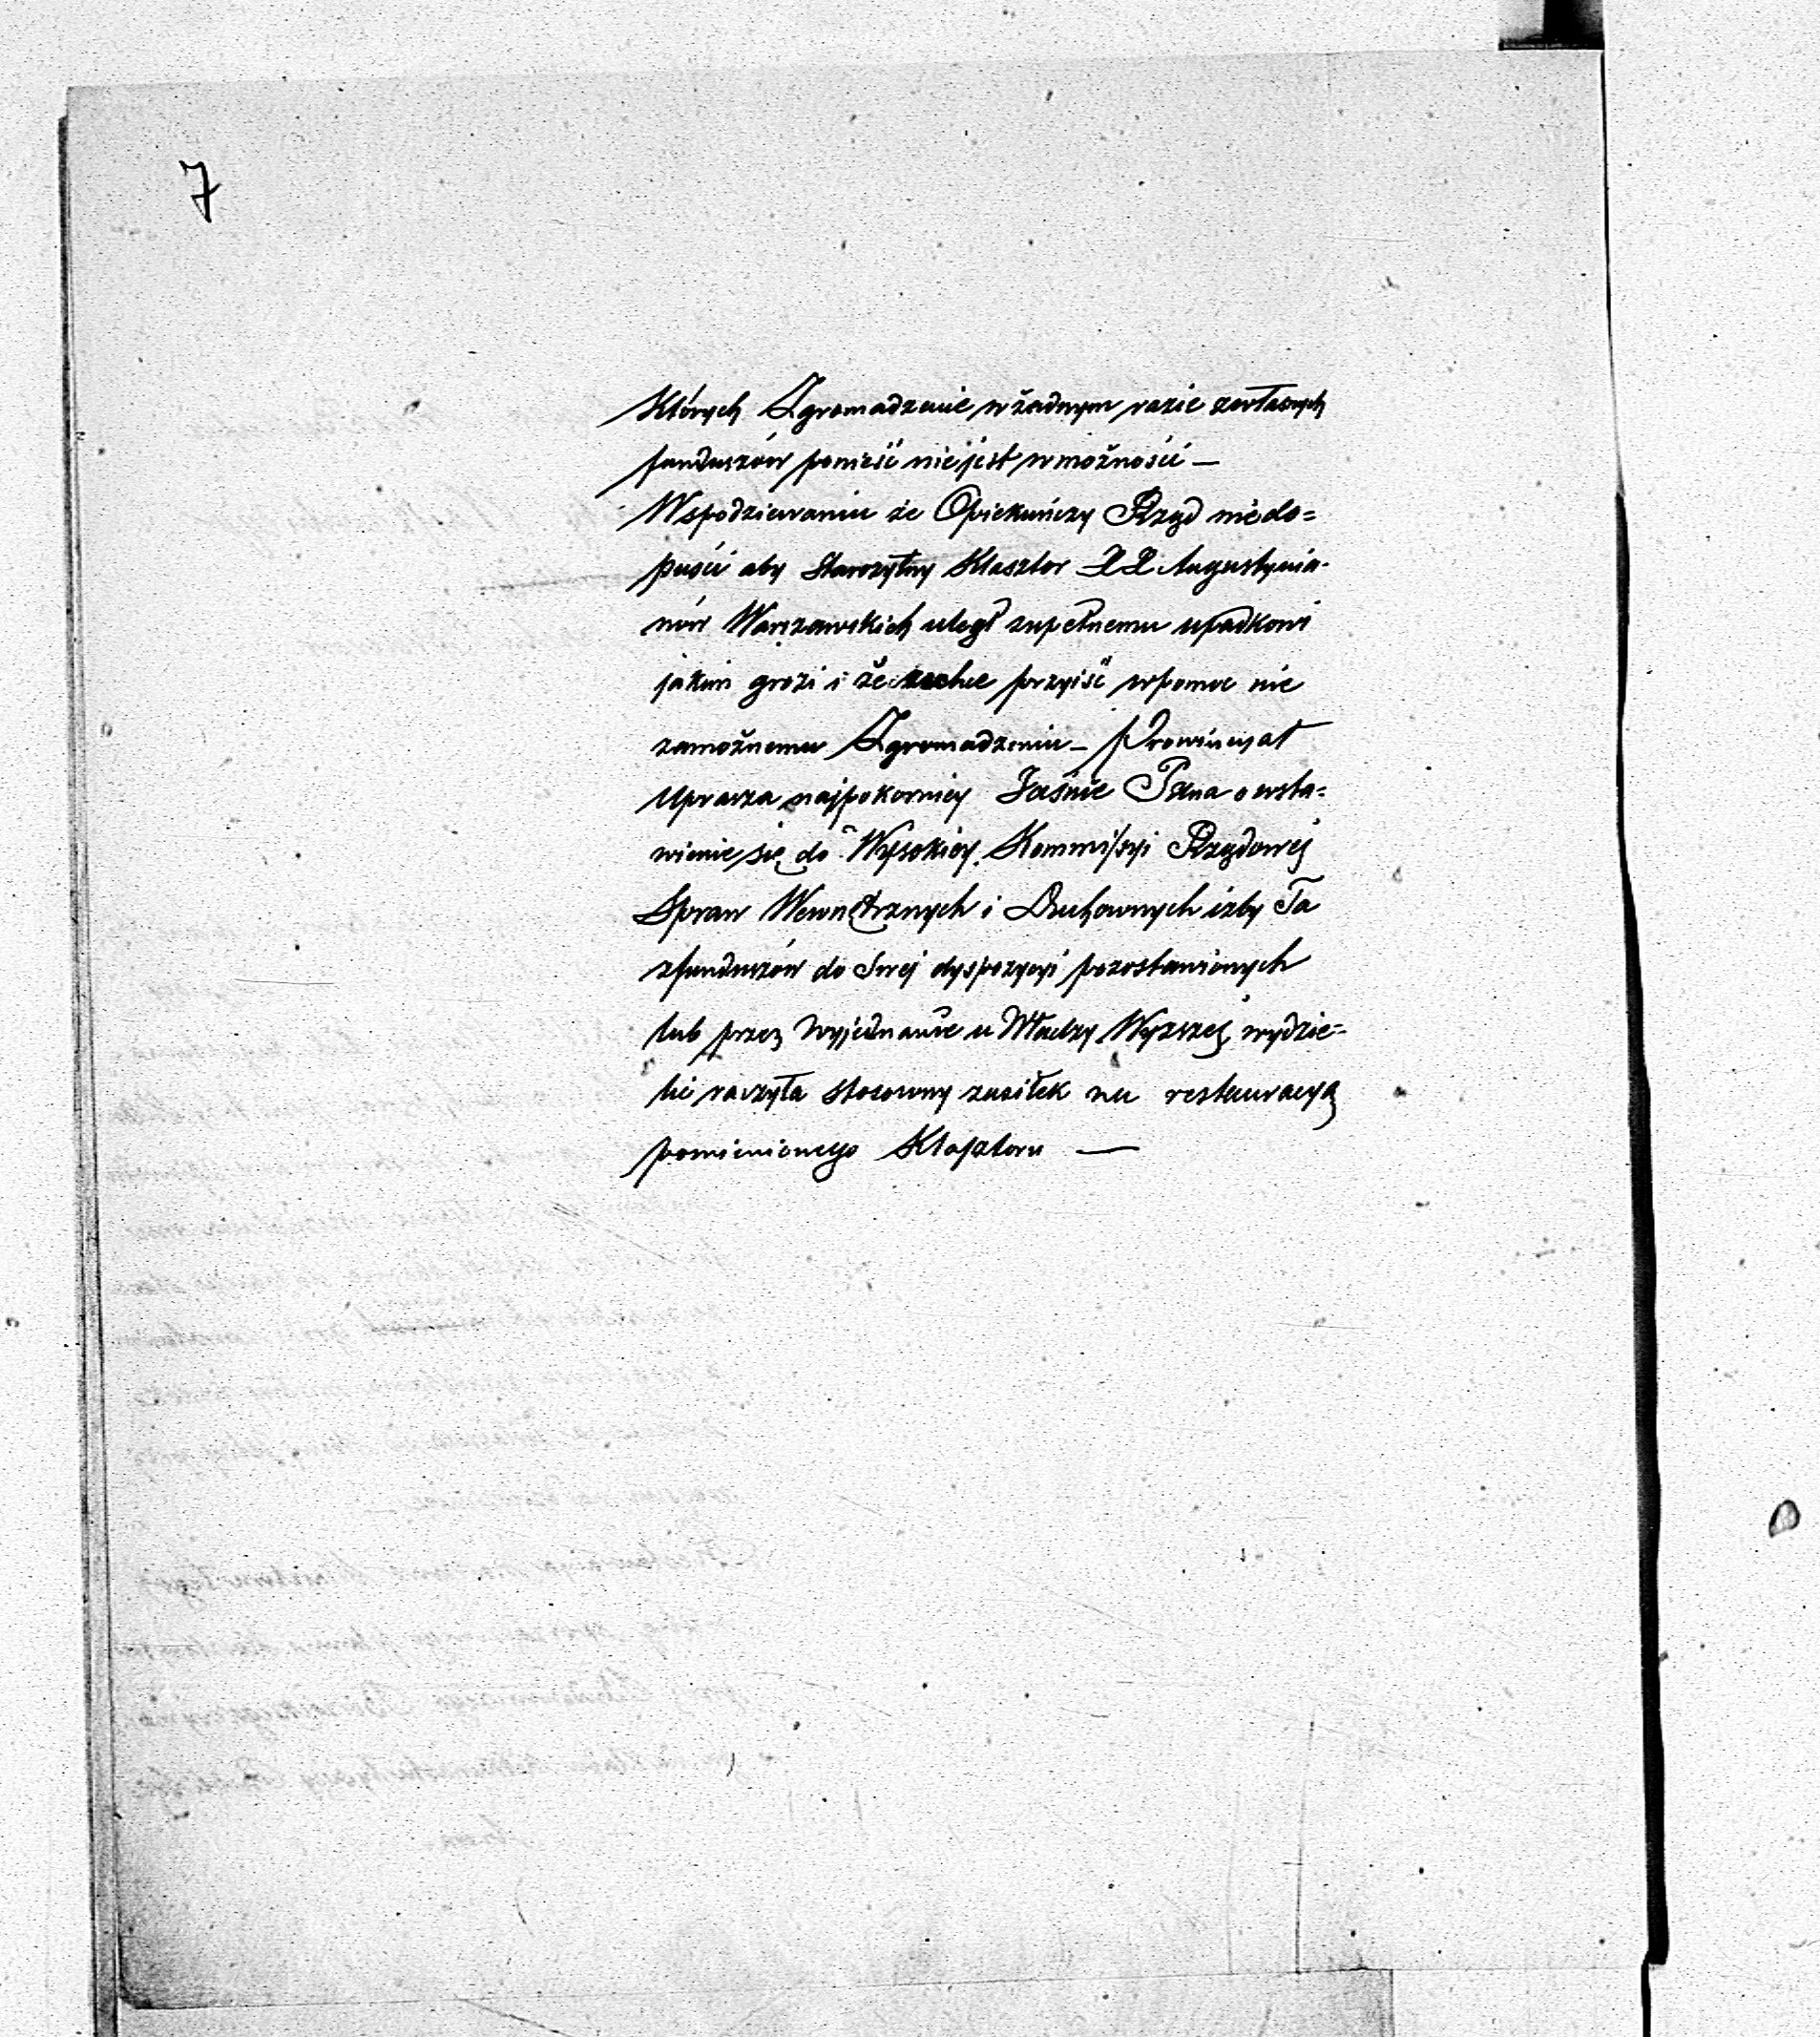 7
których Zgromadzenie w żadnym razie z własnych
funduszów ponieść nie jest w możności —
W spodziewaniu że Opiekuńczy Rząd nie do=
puści aby Starożytny Klasztor XX Augustynia-
nów Warszawskich uległ zupełnemu upadkowi
jakim grozi i że zechce przyiść w pomoc nie
zamożnemu Zgromadzeniu — Prowincyał
uprasza najpokorniey Jaśnie Pana o wsta=
wienie się do Wysokiey Kommissyi Rządowej
Spraw Wewnętrznych i Duchownych iżby Ta
z funduszów do Swej dyspozycyi pozostawionych
lub przez wyjednanie u Władzy Wyższej wydzie=
lić raczyła stosowny zasiłek na restauracyą
pomienionego Klasztoru —